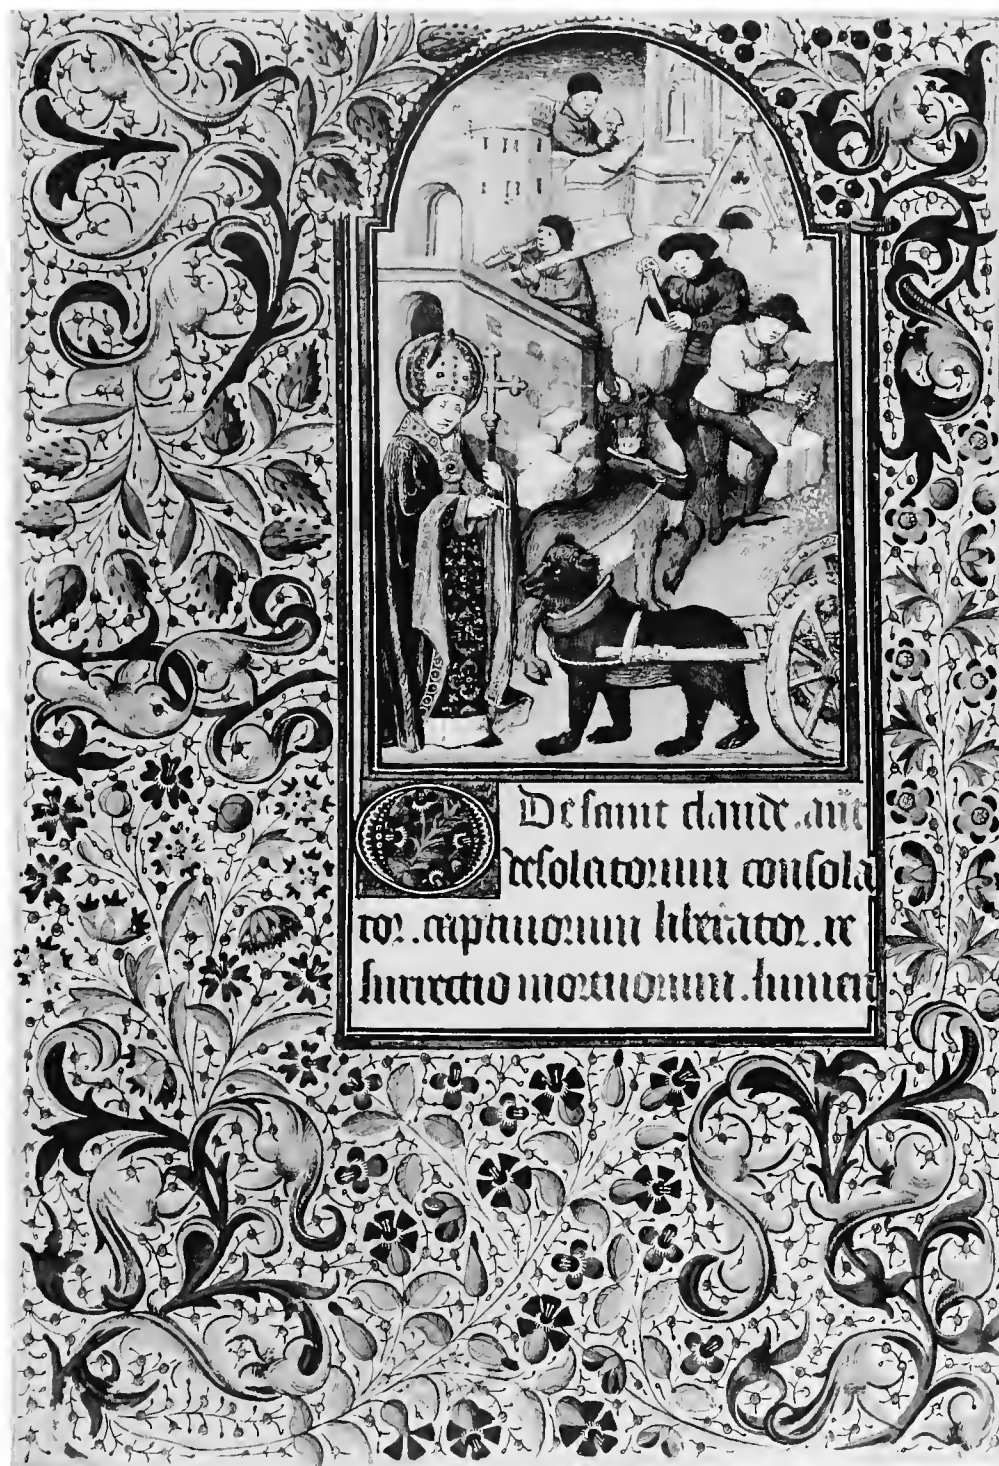 De saint claude. añt
O desolatorum consola
tor. captiuorum liberator. re
surrectio mortuorum. lumen